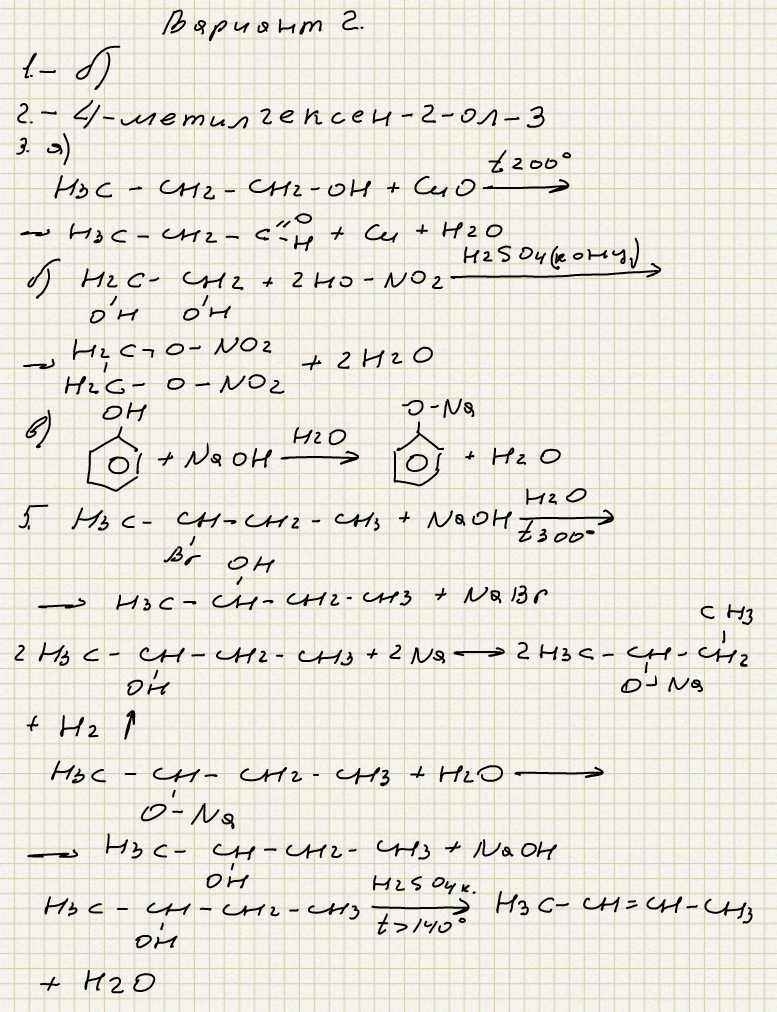 Вариант 2.
1. – б)
2. – 4-метилгексен-2-ол-3
3. а)
H3C – CH2 – CH2–OH + CuO → t 200°
→ H3C – CH2 – C =O –H + Cu + H2O
б) H2C – CH2 + 2HO–NO2 → H2SO4(конц)
OH OH
→ H2C – O – NO2
H2C – O – NO2 + 2H2O
в) OH + NaOH → H2O O–Na + H2O
5. H3C – CH–CH2–CH3 + NaOH → H2O t 300°
Br OH
→ H3C – CH–CH2–CH3 + NaBr
CH3
2 H3C – CH – CH2 – CH3 + 2Na → 2 H3C – CH – CH2
OH O–Na
+ H2 ↑
H3C – CH – CH2 – CH3 + H2O →
O – Na
→ H3C – CH – CH2 – CH3 + NaOH
OH
H3C – CH – CH2 – CH3 → H2SO4 к. t>140° H3C – CH=CH–CH3
OH
+ H2O